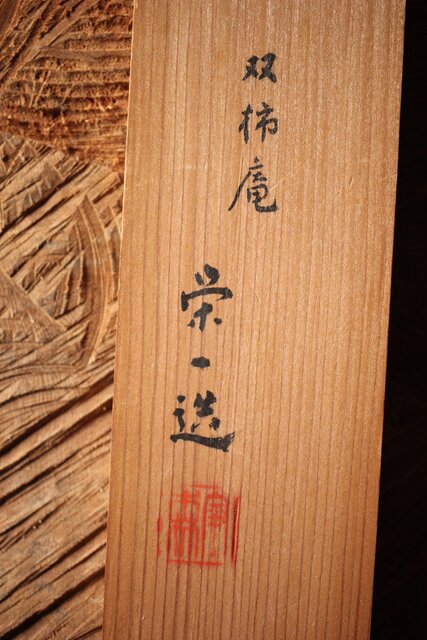 双柿庵
栄一造